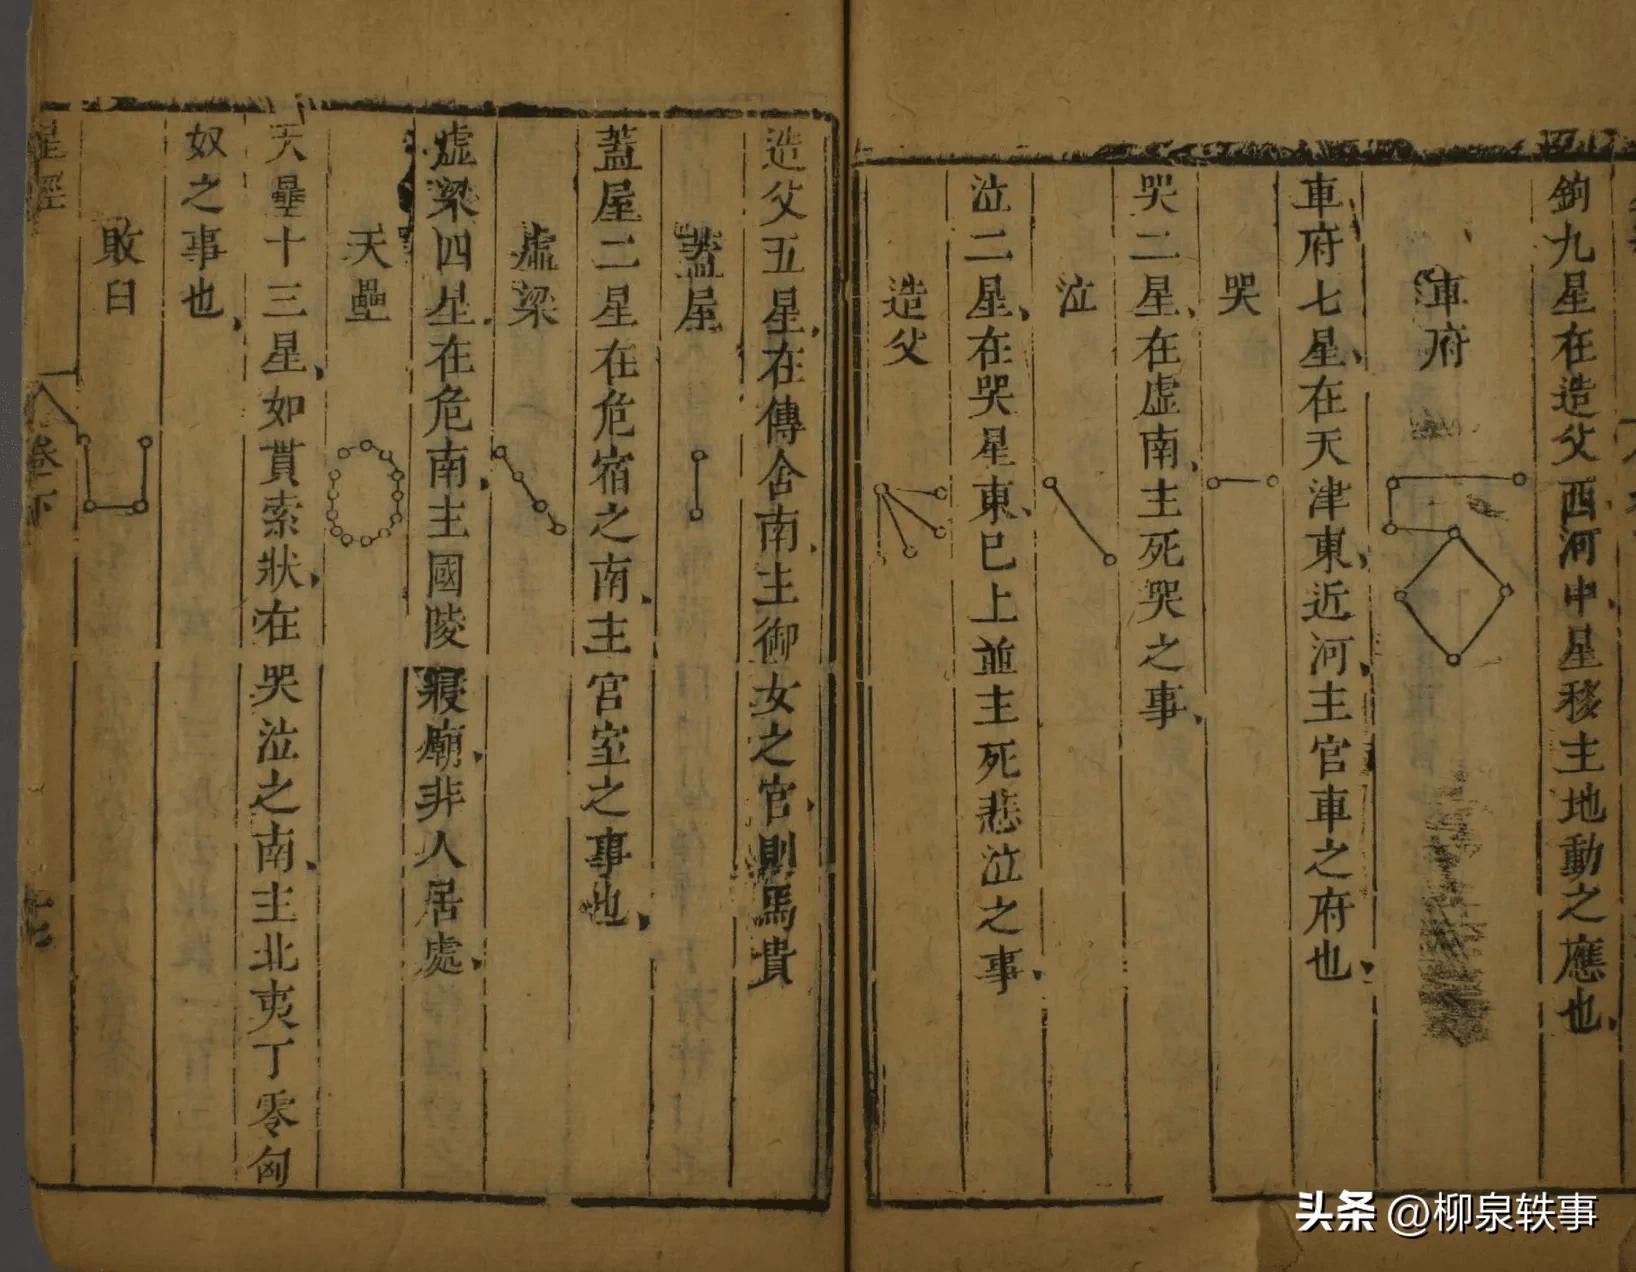 鉤九星在造父西河中星移主地動之應也
車府
車府七星在天津東近河主官車之府也
哭
哭二星在虛南主死哭之事
泣
泣二星在哭星東已上並主死悲泣之事
造父
造父五星在傳舍南主御女之官則馬貴
蓋屋
蓋屋二星在危宿之南主官室之事也
虛梁
虛梁四星在危南主國陵寢廟非人居處
天壘
天壘十三星如貫索狀在哭泣之南主北夷丁零匈
奴之事也
敗臼
星經
卷下
頭条 @柳泉轶事